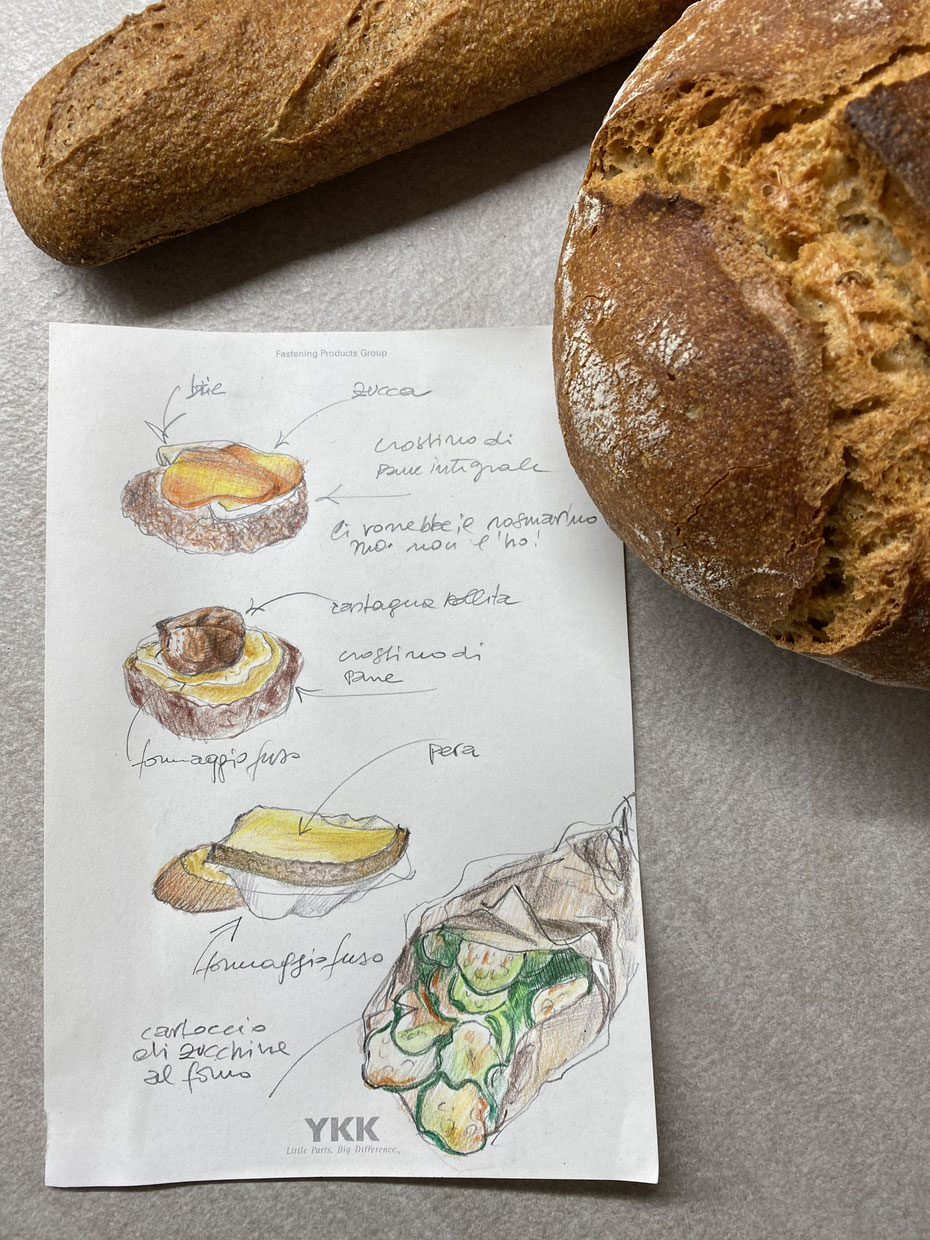 Fastening Products Group
brie
zucca
crostino di
pane integrale
ci vorrebbe il rosmarino
ma non l'ho!
castagna bollita
crostino di
pane
formaggio fuso
pera
formaggio fuso
cartoccio
di zucchine
al forno
YKK
Little Parts. Big Difference.